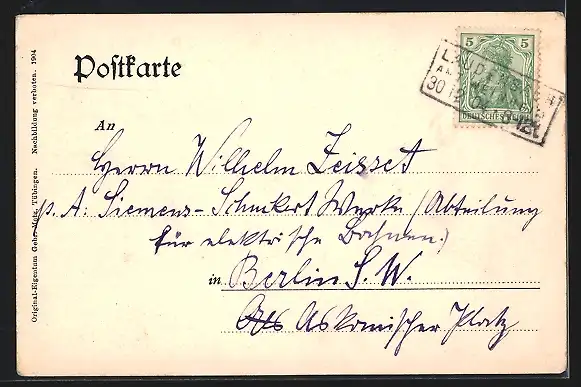 Postkarte
5 5
DEUTSCHES REICH
30 12
An
Herrn Wilhelm Zeisset
p. A: Siemens-Schuckert Werke (Abteilung
für elektrische Bahnen.)
in Berlin S. W.
Askanischer Platz
Original-Eigentum Gebr. Metz, Tübingen. Nachbildung verboten. 1904